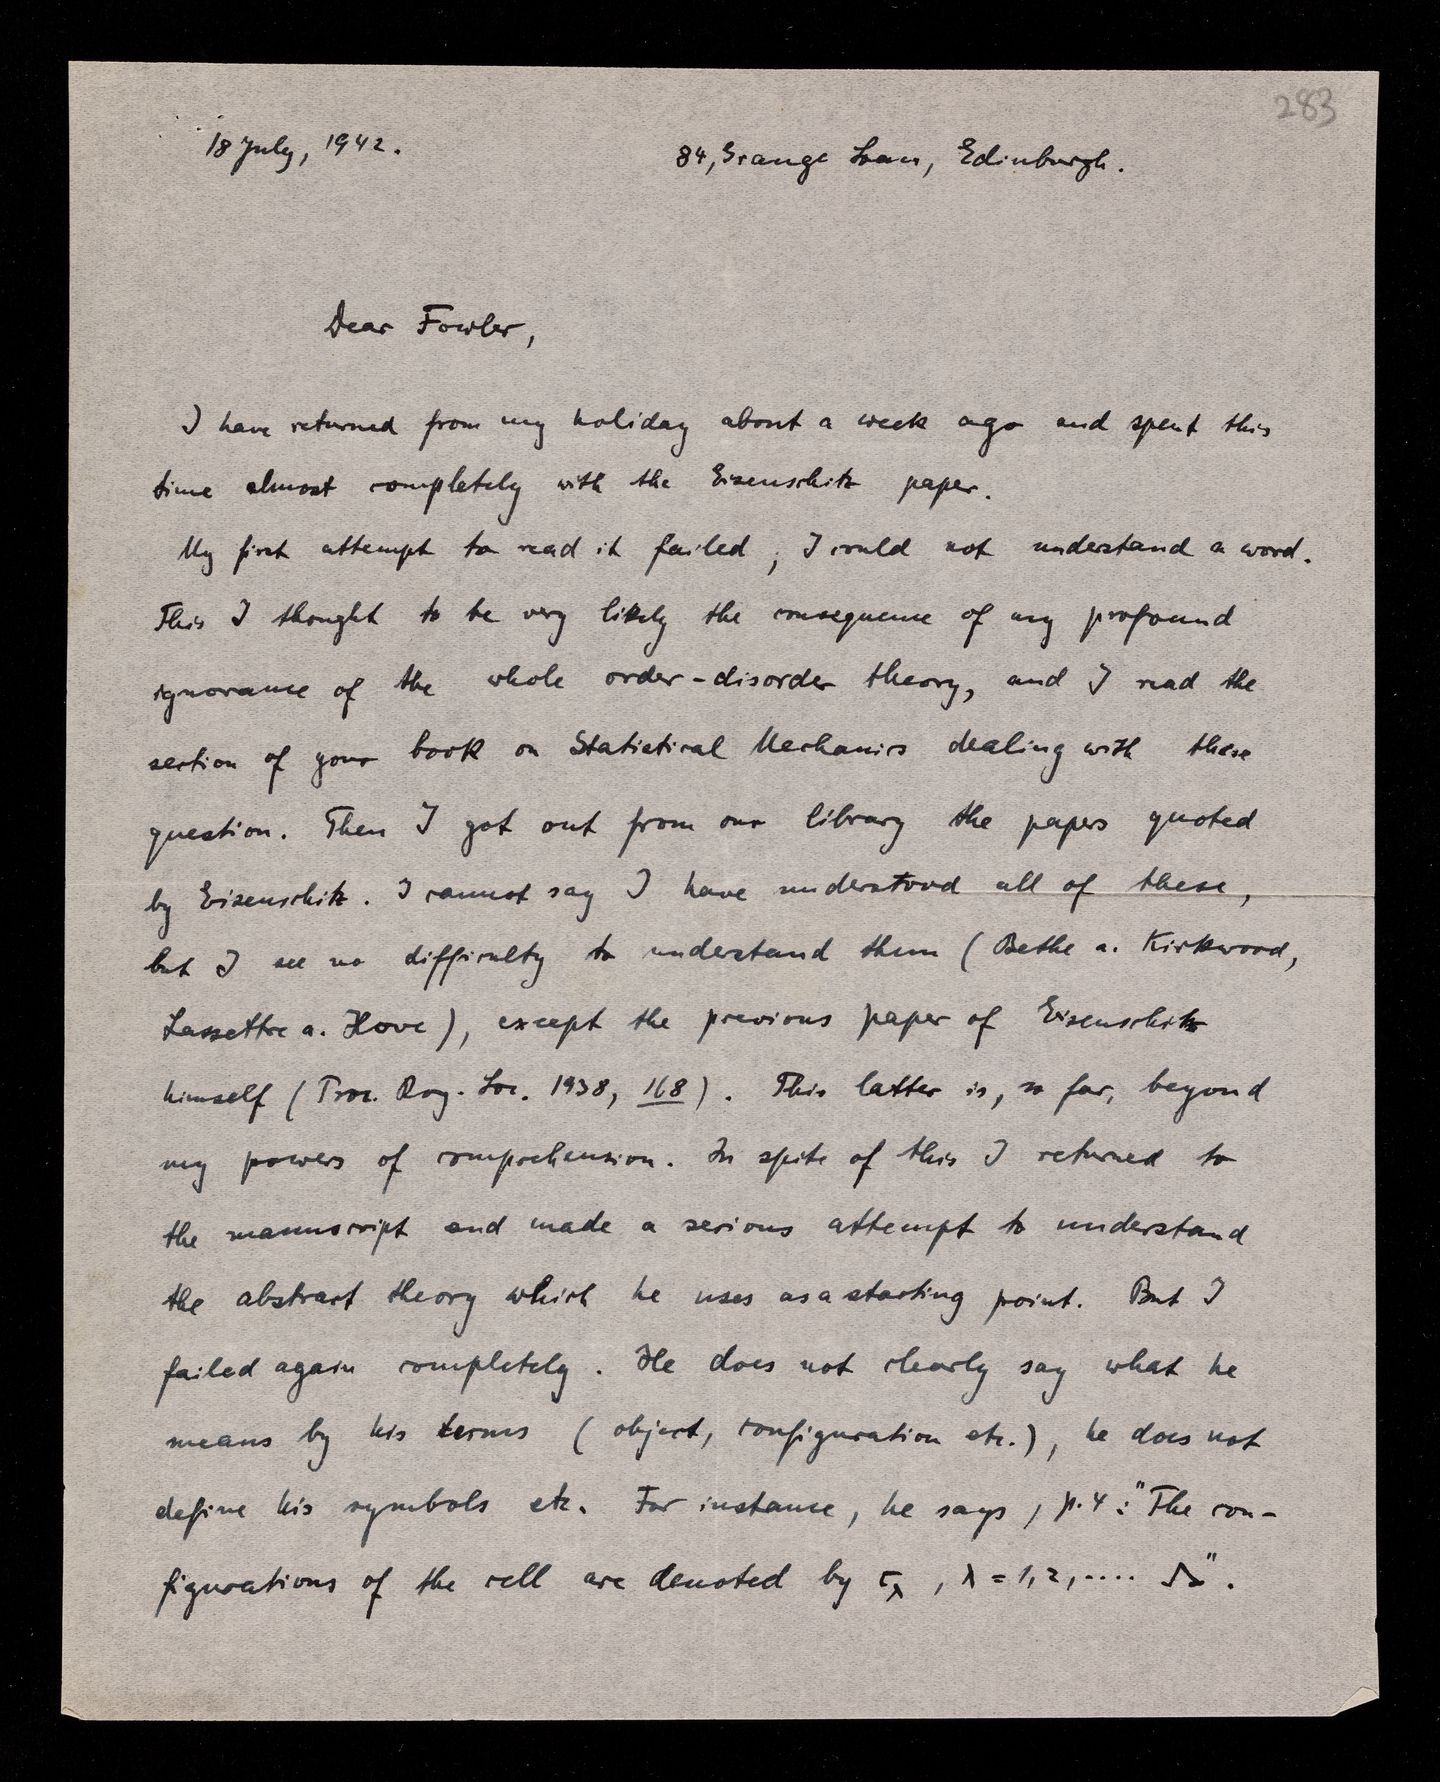 283
18 July, 1942.
84, Grange Loan, Edinburgh.
Dear Fowler,
I have returned from my holiday about a week ago and spent this
time almost completely with the Eisenschitz paper.
My first attempt to read it failed; I could not understand a word.
This I thought to be very likely the consequence of my profound
ignorance of the whole order-disorder theory, and I read the
section of your book on Statistical Mechanics dealing with these
question. Then I got out from our library the papers quoted
by Eisenschitz. I cannot say I have understood all of these,
but I see no difficulty to understand them (Bethe a. Kirkwood,
Lassettre a. Howe), except the previous paper of Eisenschitz
himself (Proc. Roy. Soc. 1938, 168). This latter is, so far, beyond
my powers of comprehension. In spite of this I returned to
the manuscript and made a serious attempt to understand
the abstract theory which he uses as a starting point. But I
failed again completely. He does not clearly say what he
means by his terms (object, configuration etc.), he does not
define his symbols etc. For instance, he says, p. 4: "The con-
figurations of the cell are denoted by τλ, λ = 1, 2, .... Λ".